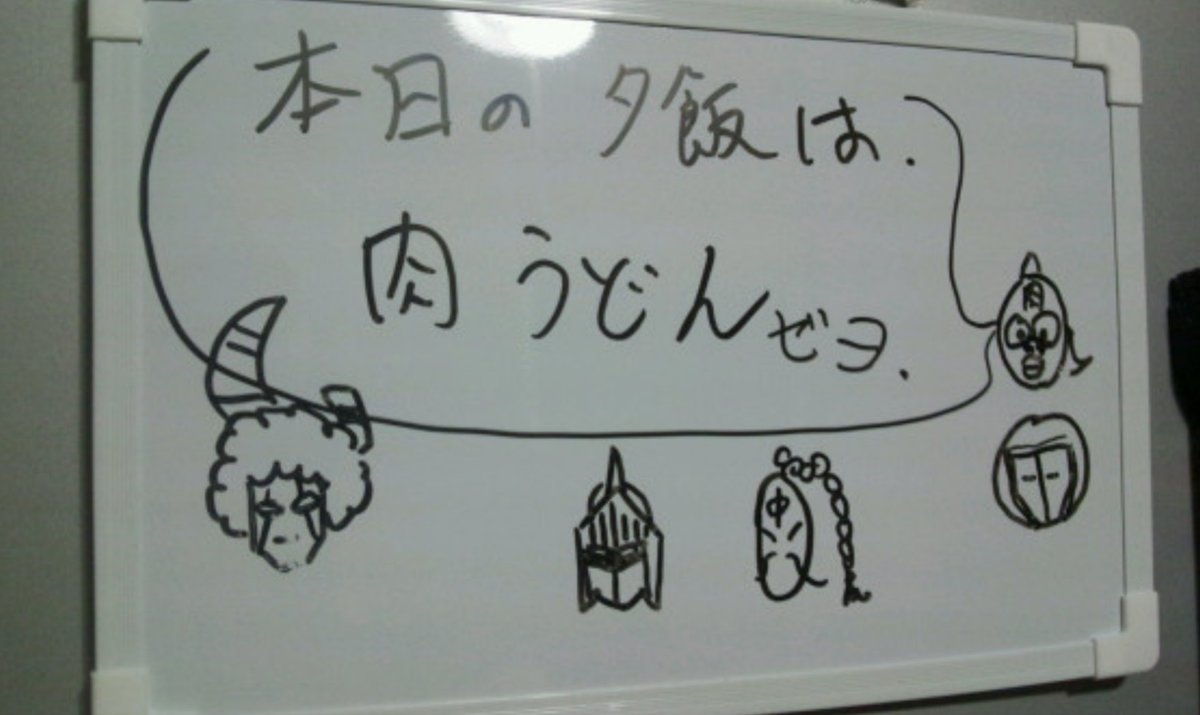 本日の夕飯は.
肉うどんゼヨ.
肉
中